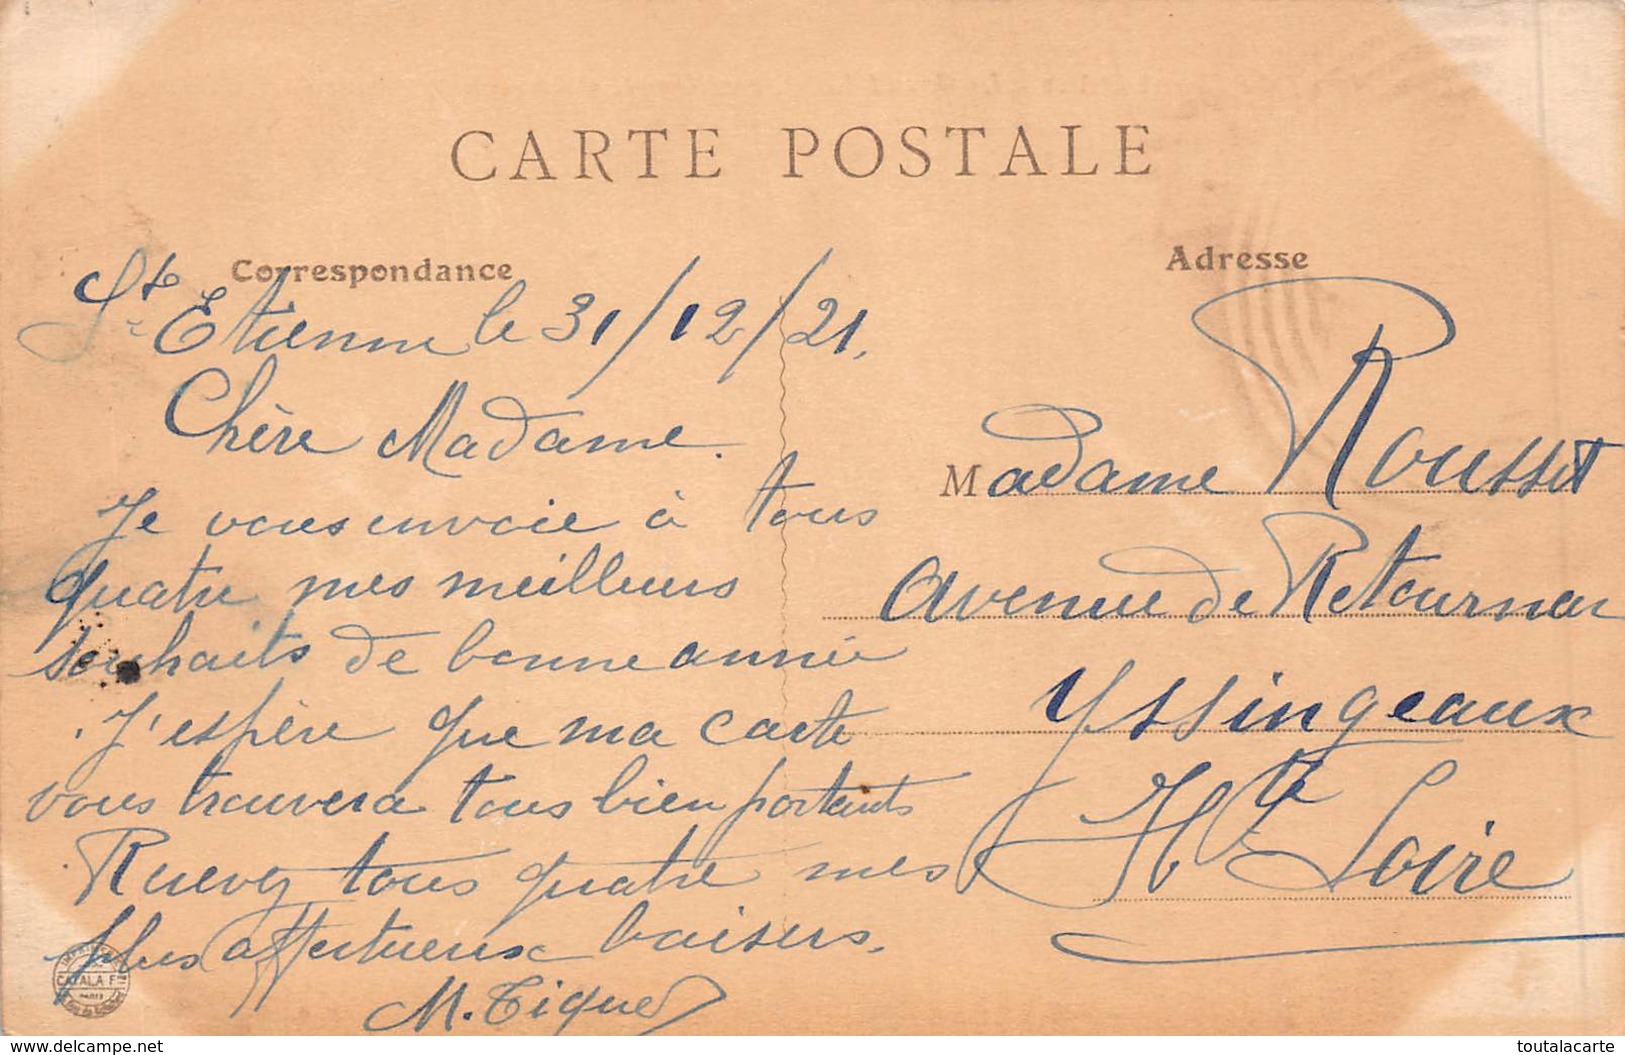 CARTE POSTALE
Correspondance
St Etienne le 31/12/21.
Chère Madame.
Je vous envoie à tous
quatre mes meilleurs
souhaits de bonne année
J'espère que ma carte
vous trouvera tous bien portants
Recevez tous quatre mes
plus affectueux baisers.
M.
Adresse
Madame Rousset
Avenue de Retournac
Yssingeaux
Hte Loire
CATALA F
PARIS
www.delcampe.net
toutalacarte